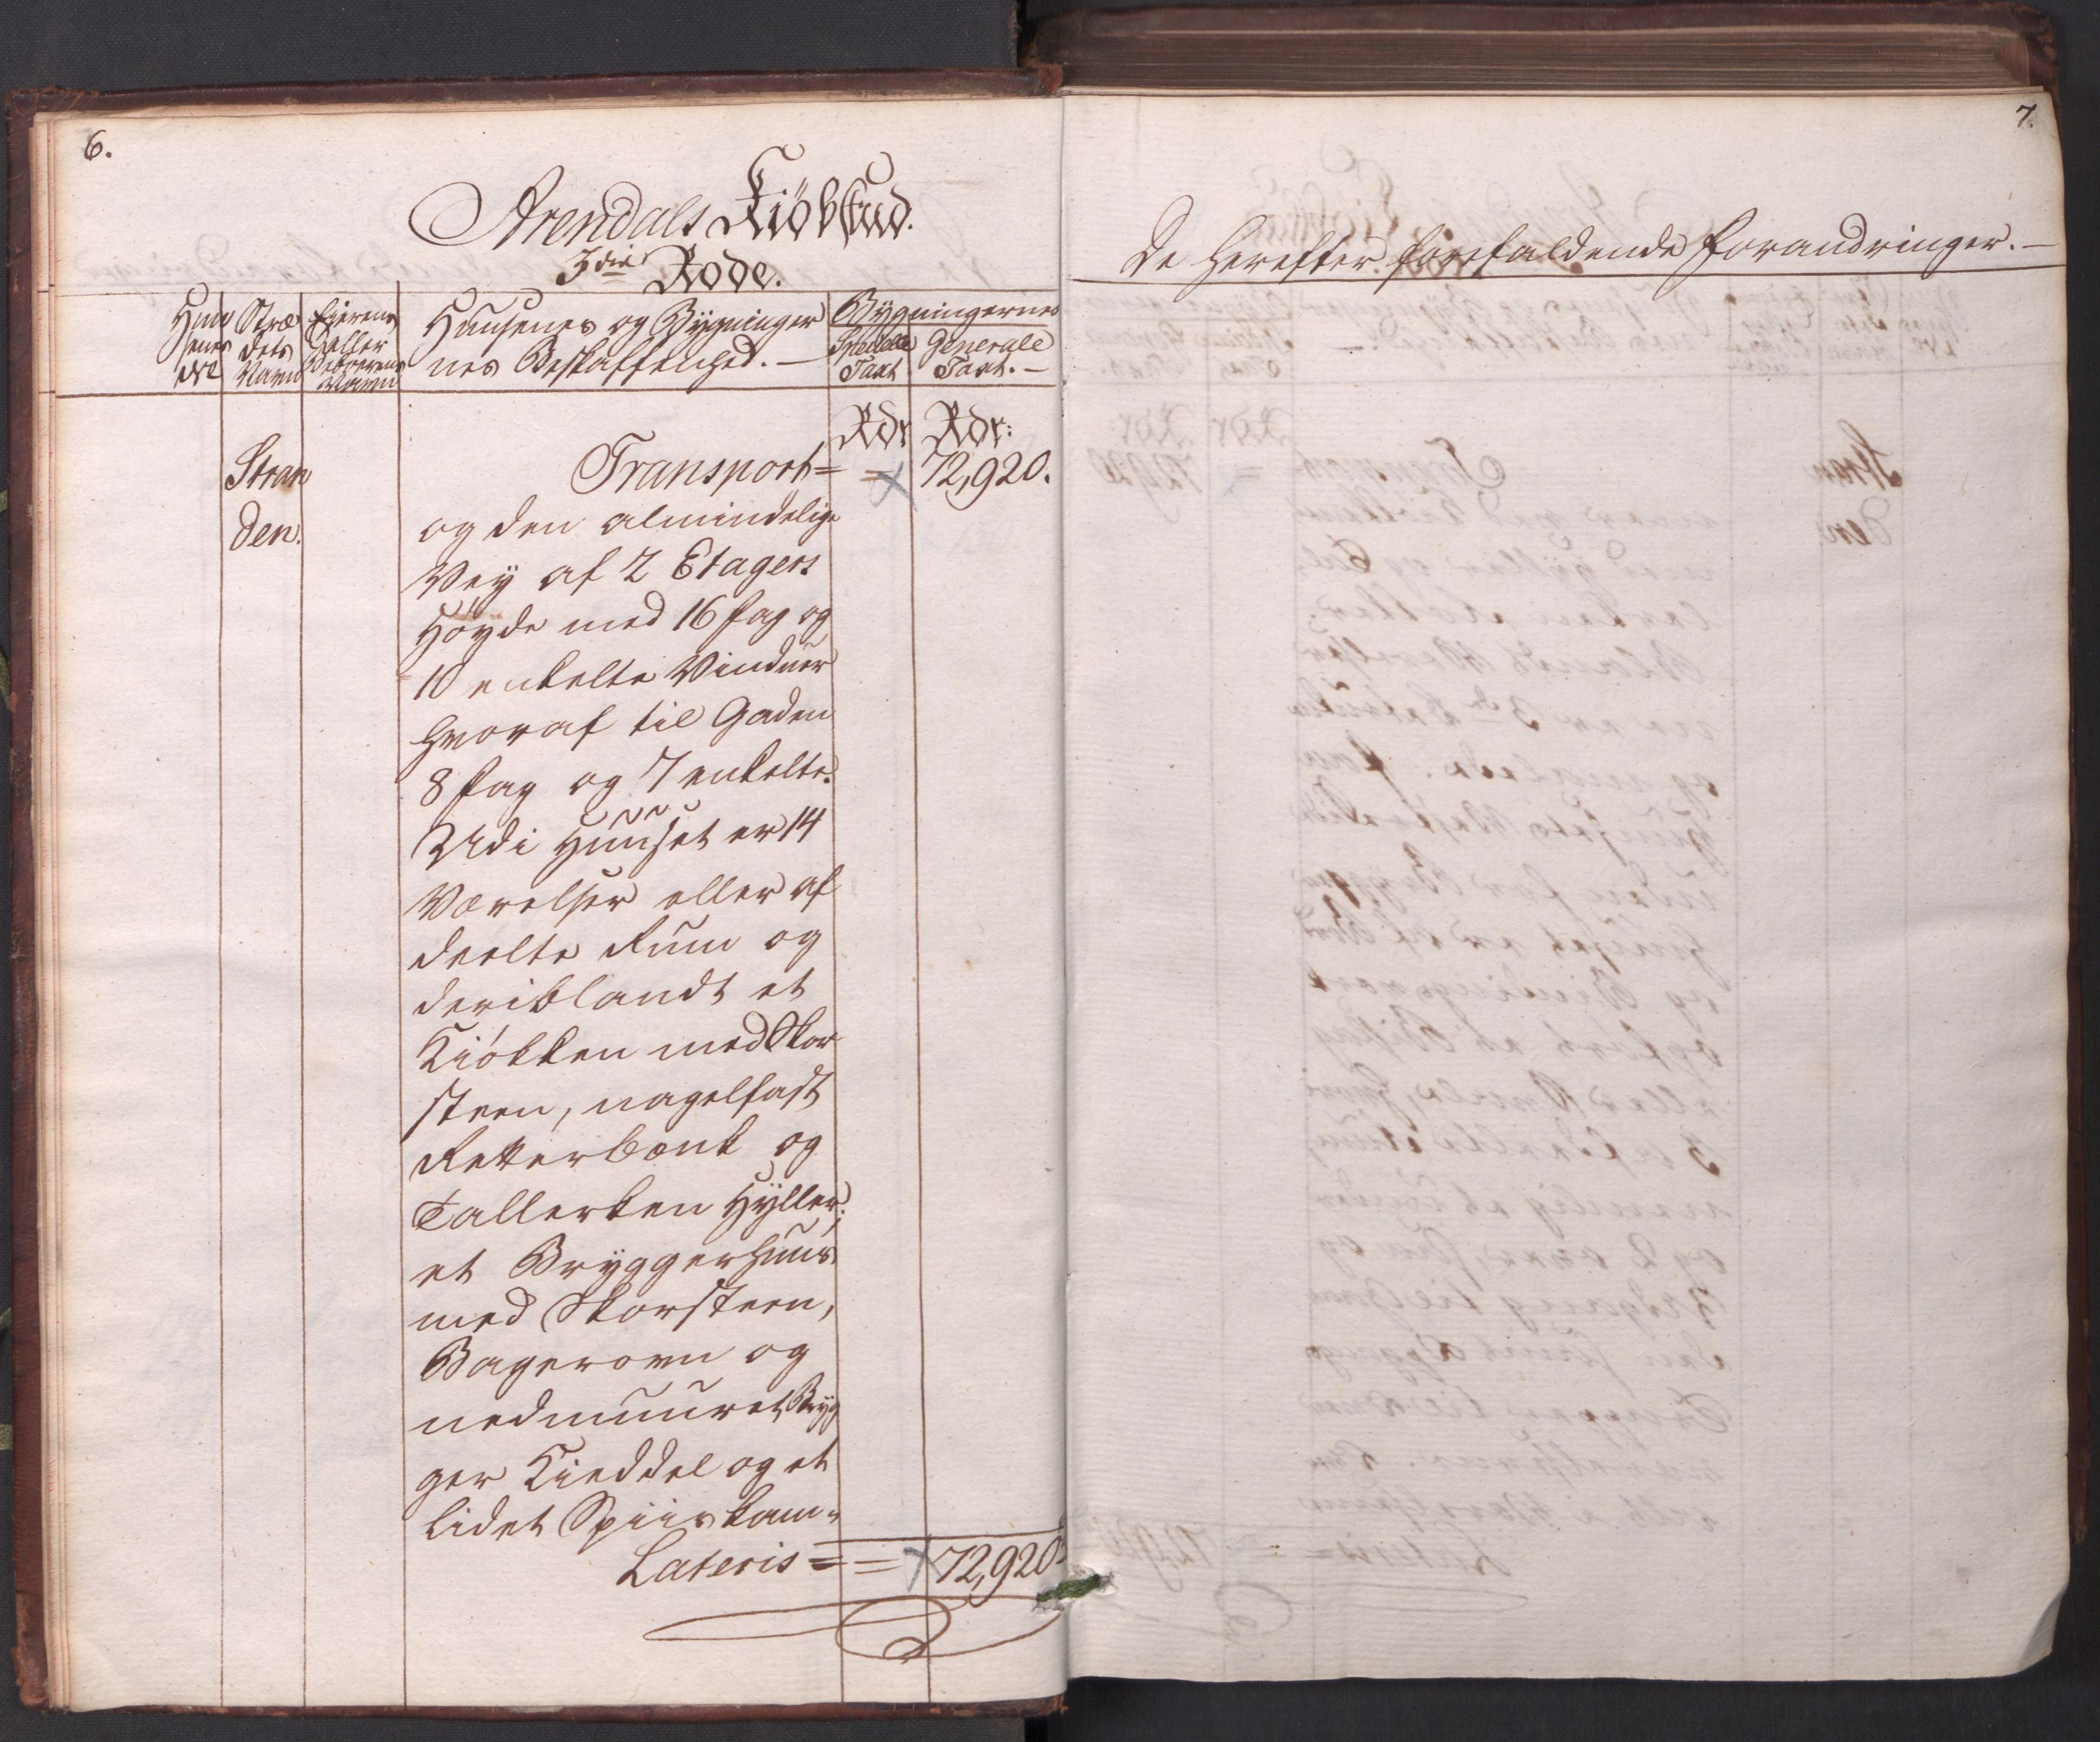 6.
Arendals Kiöbstad.
3die Rode.
Huu
senes
No
Stræ
dets
Navn
Eierens
eller
Beboerens
Navn
Huusenes og Bÿgninger
nes Beskaffenhed. —
Bÿgningernes
Specielle
Taxt
Generale
Taxt. —
Rdr Rdr:
Stran
den.
Transport = = 72,920.
og den almindelige
Veÿ af 2 Etagers
Höÿde med 16 fag og
10 enkelte Vinduer
hvoraf til Gaden
8 fag og 7 enkelte.
Udi Huuset er 14
Værelser eller af
deelte Rum og
deriblandt et
Kiökken med Skor
steen, nagelfast
Retterbænk og
Tallerken Hÿller;
et Brÿggerhuus
med Skorsteen,
Bagerovn og
nedmuuret Brÿg
ger Kieddel og et
lidet Spiiskam=
Lateris = = 72,920
7.
De herefter forefaldende Forandringer. —